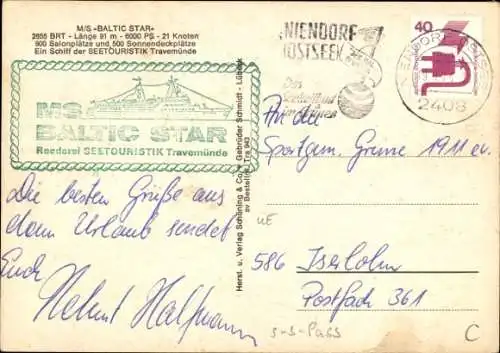 M/S »BALTIC STAR«
2655 BRT - Länge 91 m - 6000 PS - 21 Knoten
900 Salonplätze und 500 Sonnendeckplätze
Ein Schiff der SEETOURISTIK Travemünde
MS
BALTIC STAR
Reederei SEETOURISTIK Travemünde
Die besten Grüße aus
dem Urlaub sendet
Euch
Helmut Halfmann
Herst. u. Verlag Schöning & Co. + Gebrüder Schmidt - Lübeck
Bestellnr. Tra 943
NIENDORF
OSTSEE
Das
im Grünen
40
2408
An die
Sportgem. Grüne 1911 e.V.
586 Iserlohn
Postfach 361
UE
S-S-PaSS
C